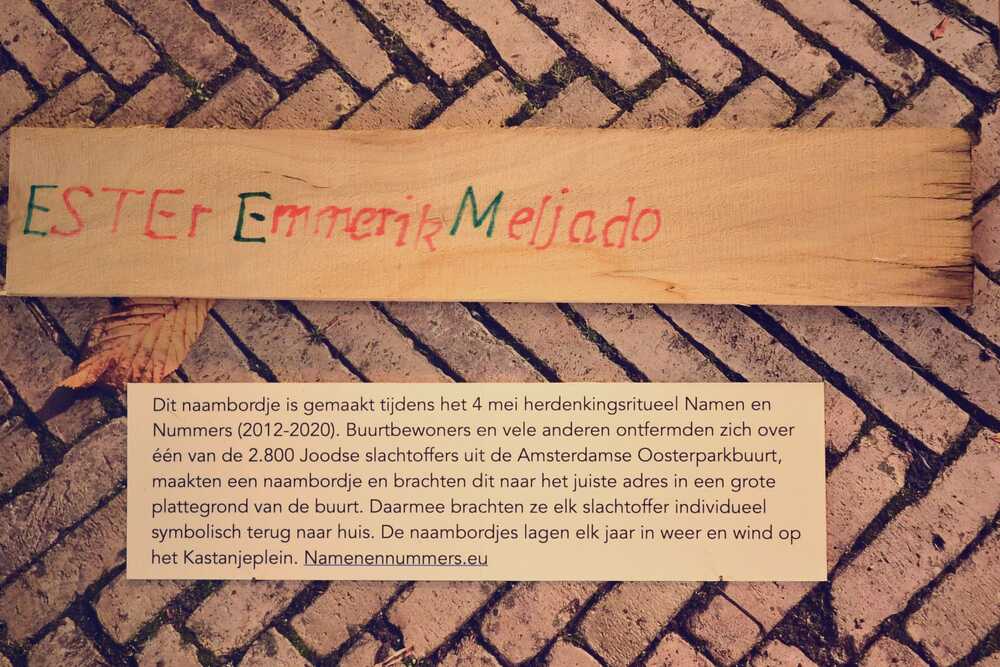 ESTEr Emmerik Meljado
Dit naambordje is gemaakt tijdens het 4 mei herdenkingsritueel Namen en
Nummers (2012-2020). Buurtbewoners en vele anderen ontfermden zich over
één van de 2.800 Joodse slachtoffers uit de Amsterdamse Oosterparkbuurt,
maakten een naambordje en brachten dit naar het juiste adres in een grote
plattegrond van de buurt. Daarmee brachten ze elk slachtoffer individueel
symbolisch terug naar huis. De naambordjes lagen elk jaar in weer en wind op
het Kastanjeplein. Namenennummers.eu